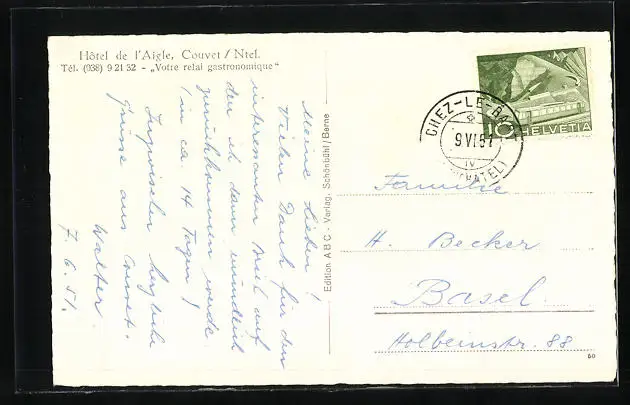 Hôtel de l'Aigle, Couvet / Ntel.
Tél. (038) 9 21 32 - „Votre relai gastronomique“
Meine Lieben!
Vielen Dank für den
interessanten Brief auf
den ich dann mündlich
zurückkommen werde
(in ca. 14 Tagen)
Inzwischen herzliche
Grüsse aus Couvet.
Walter
7. 6. 51.
Edition A B C - Verlag, Schönbühl / Berne
CHEZ-LE-BA
9 VI 51
IV
CHATEL)
10 HELVETIA
Familie
H. Becker
Basel.
Holbeinstr. 88
60